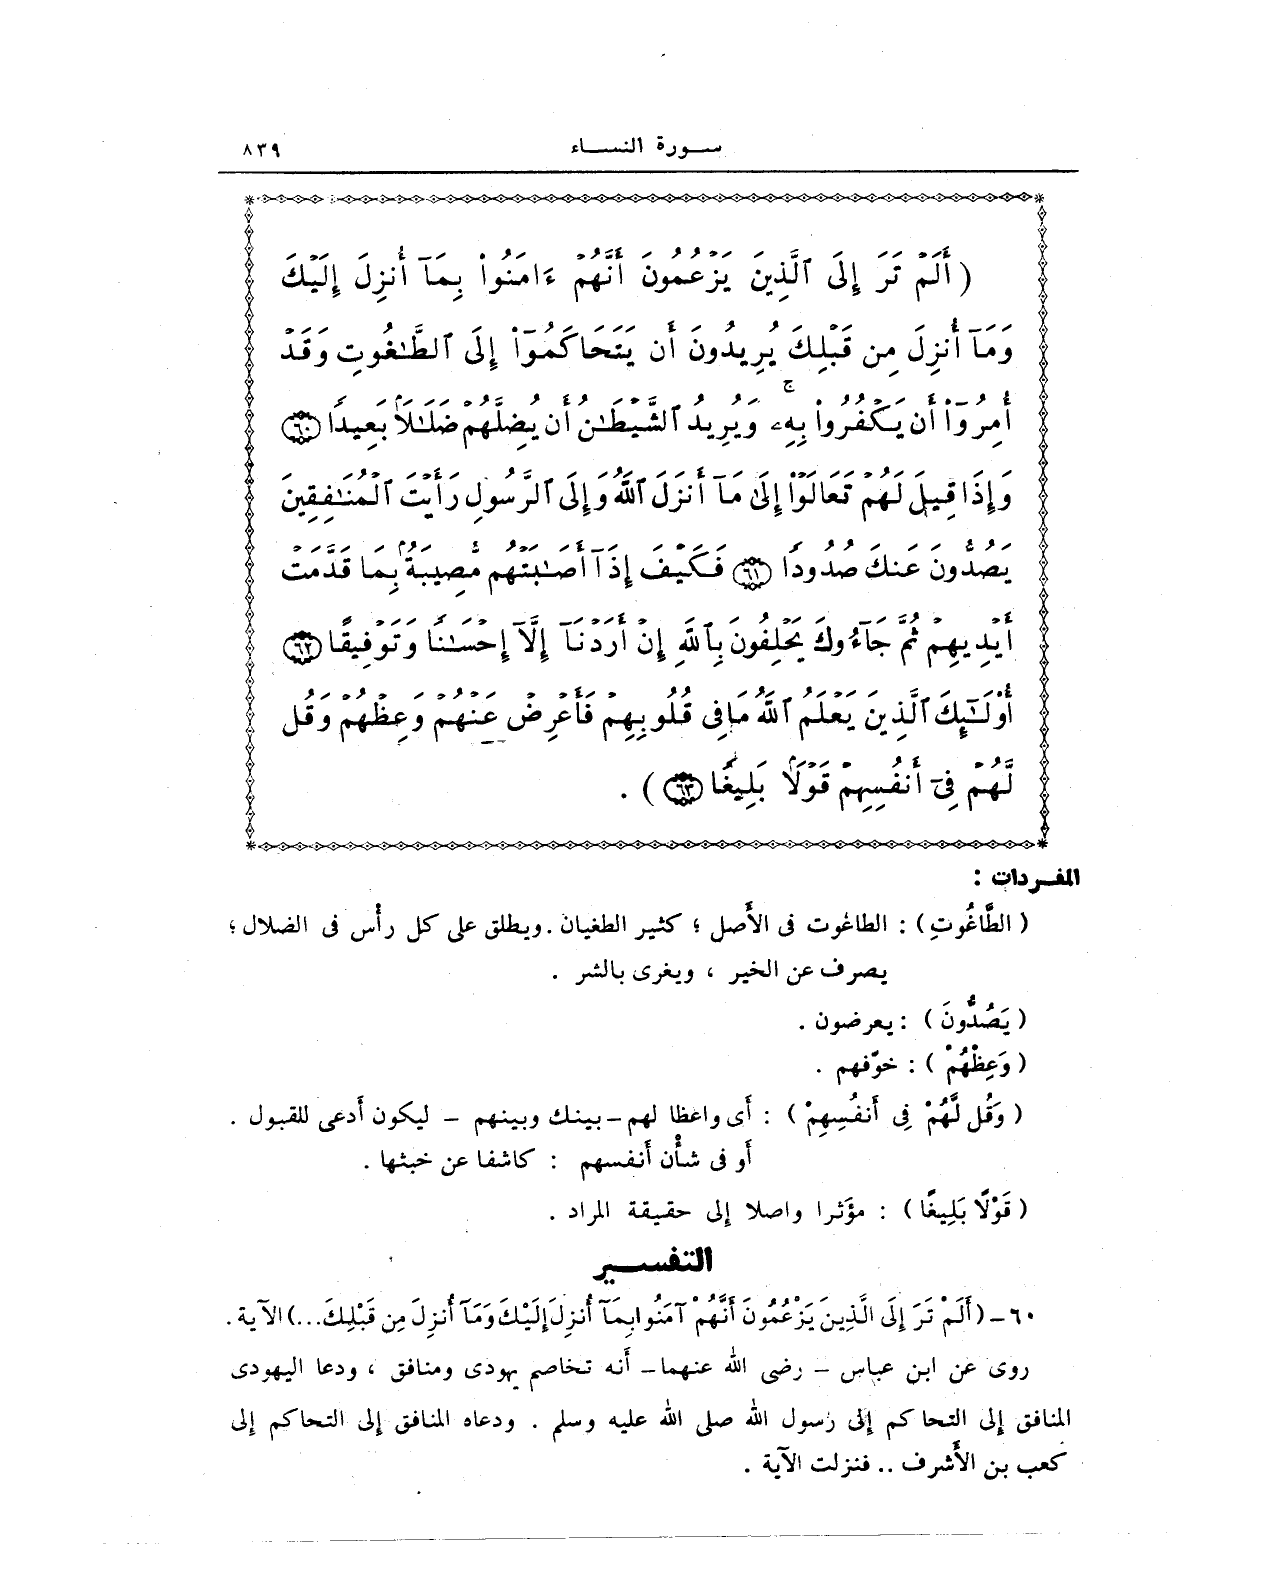 سورة النساء ٨٣٩
( أَلَمْ تَرَ إِلَى ٱلَّذِينَ يَزْعُمُونَ أَنَّهُمْ ءَامَنُوا۟ بِمَآ أُنزِلَ إِلَيْكَ
وَمَآ أُنزِلَ مِن قَبْلِكَ يُرِيدُونَ أَن يَتَحَاكَمُوٓا۟ إِلَى ٱلطَّـٰغُوتِ وَقَدْ
أُمِرُوٓا۟ أَن يَكْفُرُوا۟ بِهِۦ ۚ وَيُرِيدُ ٱلشَّيْطَـٰنُ أَن يُضِلَّهُمْ ضَلَـٰلًۢا بَعِيدًا ٦٠
وَإِذَا قِيلَ لَهُمْ تَعَالَوْا۟ إِلَىٰ مَآ أَنزَلَ ٱللَّهُ وَإِلَى ٱلرَّسُولِ رَأَيْتَ ٱلْمُنَـٰفِقِينَ
يَصُدُّونَ عَنكَ صُدُودًا ٦١ فَكَيْفَ إِذَآ أَصَـٰبَتْهُم مُّصِيبَةٌۢ بِمَا قَدَّمَتْ
أَيْدِيهِمْ ثُمَّ جَآءُوكَ يَحْلِفُونَ بِٱللَّهِ إِنْ أَرَدْنَآ إِلَّآ إِحْسَـٰنًا وَتَوْفِيقًا ٦٢
أُو۟لَـٰٓئِكَ ٱلَّذِينَ يَعْلَمُ ٱللَّهُ مَا فِى قُلُوبِهِمْ فَأَعْرِضْ عَنْهُمْ وَعِظْهُمْ وَقُل
لَّهُمْ فِىٓ أَنفُسِهِمْ قَوْلًۢا بَلِيغًا ٦٣ ) .
المفردات :
( الطَّاغُوتِ ) : الطاغوت فى الأصل ؛ كثير الطغيان . ويطلق على كل رأس فى الضلال ؛
يصرف عن الخير ، ويغرى بالشر .
( يَصُدُّونَ ) : يعرضون .
( وَعِظْهُمْ ) : خوّفهم .
( وَقُل لَّهُمْ فِى أَنفُسِهِمْ ) : أَى واعظا لهم – بينك وبينهم – ليكون أدعى للقبول .
أَو فى شأْن أَنفسهم : كاشفا عن خبثها .
( قَوْلًا بَلِيغًا ) : مؤَثرا واصلا إلى حقيقة المراد .
التفسير
٦٠ – ( أَلَمْ تَرَ إِلَى الَّذِينَ يَزْعُمُونَ أَنَّهُمْ آمَنُوا بِمَآ أُنزِلَ إِلَيْكَ وَمَآ أُنزِلَ مِن قَبْلِكَ ... ) الآية .
روى عن ابن عباس – رضى الله عنهما – أَنه تخاصم يهودى ومنافق ، ودعا اليهودى
المنافق إلى التحاكم إلى رسول الله صلى الله عليه وسلم . ودعاه المنافق إلى التحاكم إلى
كعب بن الأَشرف .. فنزلت الآية .